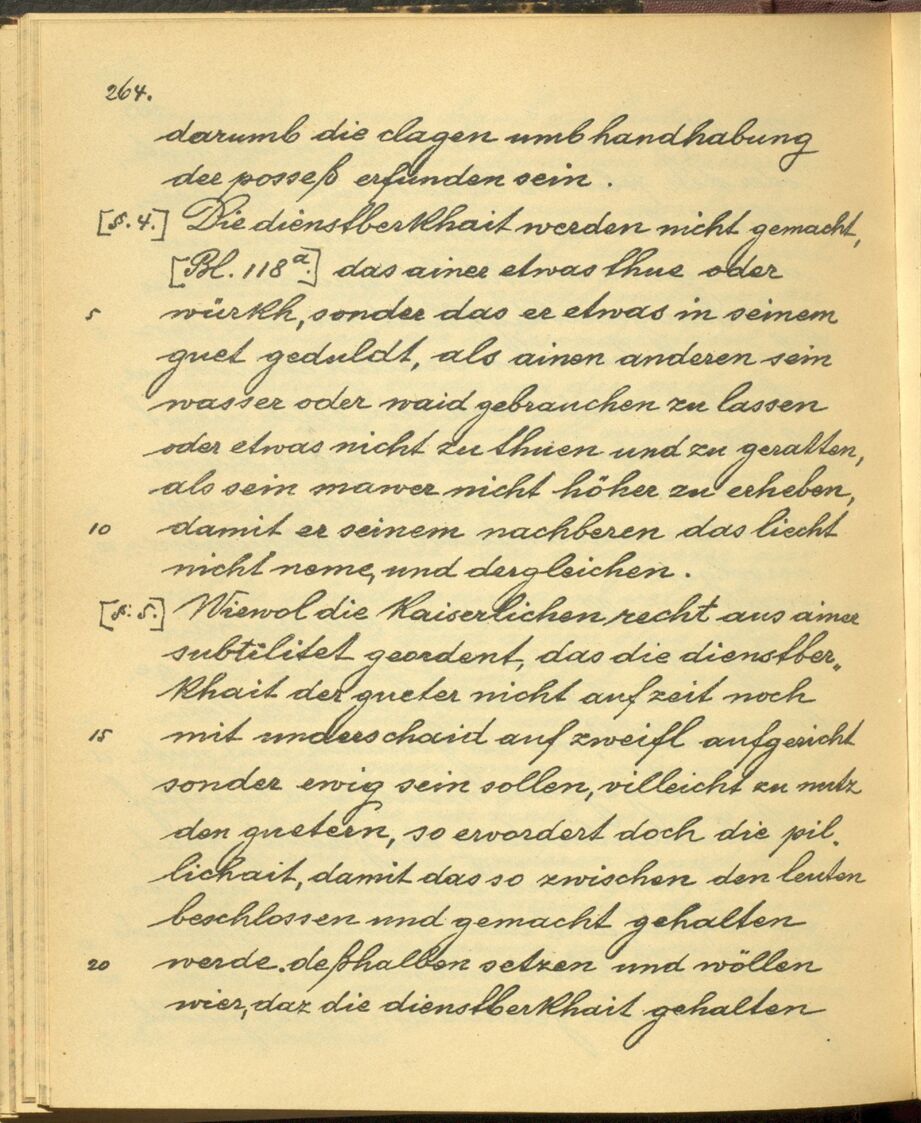 264.
darumb die clagen umb handhabung
der posseß erfunden sein.
[§. 4.] Die dienstberkhait werden nicht gemacht,
[Bl. 118a.] das ainer etwas thue oder
5 würkh, sonder das er etwas in seinem
guet geduldt, als ainen anderen sein
wasser oder waid gebrauchen zu lassen
oder etwas nicht zu thuen und zu geratten,
als sein mawer nicht höher zu erheben,
10 damit er seinem nachberen das liecht
nicht neme, und dergleichen.
[§. 5.] Wiewol die kaiserlichen recht aus ainer
subtilitet geordent, das die dienstber„
khait der gueter nicht auf zeit noch
15 mit underschaid auf zweifl aufgericht
sonder ewig sein sollen, villeicht zu nutz
den guetern, so ervordert doch die pil„
lichait, damit das so zwischen den leuten
beschlossen und gemacht gehalten
20 werde. deßhalben setzen und wöllen
wier, daz die dienstberkhait gehalten